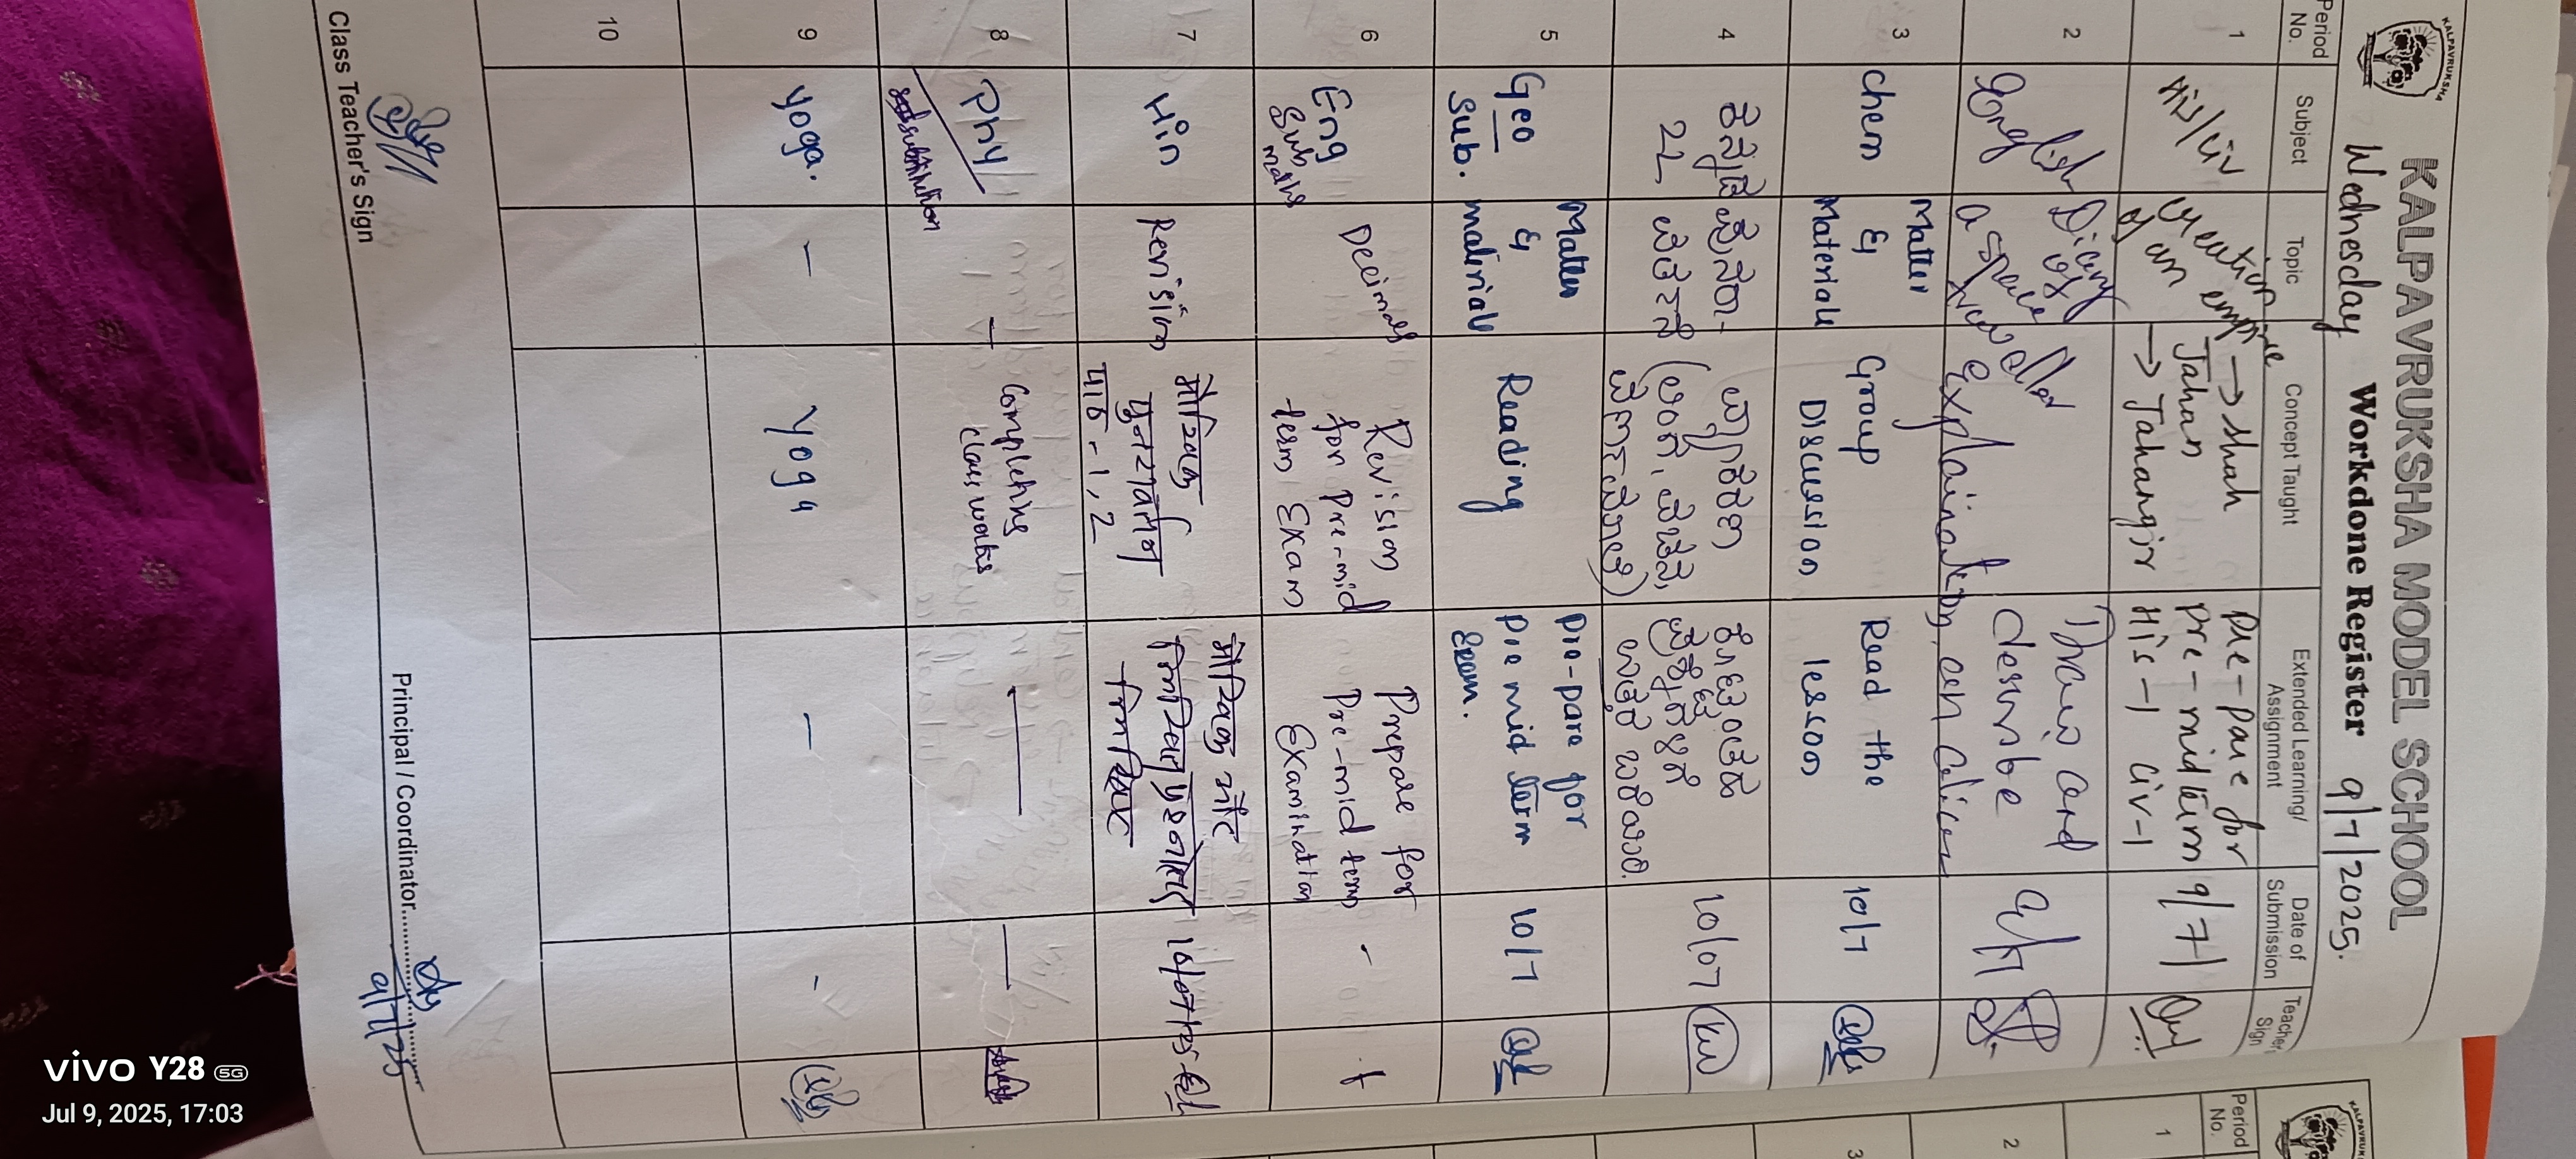 KALPAVRUKSHA
KALPAVRUKSHA MODEL SCHOOL
Wednesday Workdone Register 9/7/2025.
Period No. Subject Topic Concept Taught Extended Learning/ Assignment Date of Submission Teacher Sign
1 His/civ Creation of an empire → Shah Jahan → Jahangir Pre-pare for pre-mid term His-1 Civ-1 9/7/
2 English Diary of a space traveller explaination Draw and describe an alien 9/7
3 Chem Matter & Materials Group Discussion Read the lesson 10/7
4 ಕನ್ನಡ 2L ವ್ಯಾಕರಣ (ಲಿಂಗ, ವಚನ, ) ಪ್ರಶ್ನೆಗಳಿಗೆ ಉತ್ತರ ಬರೆಯಿರಿ. 10/07
5 Geo Sub. Matter & material Reading Pre-pare for pre mid term Exam. 10/7
6 Eng Sub maths Decimals Revision for pre-mid term Exam Prepare for Pre-mid term Examination -
7 Hin Revision मौखिक पुनरावर्तन पाठ-1, 2 मौखिक और लिखित प्रश्नोत्तर 10/07/25
8 Phy substitution — Completing class works — —
9 yoga. — yoga — -
10
Class Teacher's Sign
Principal / Coordinator
9/7/25
vivo Y28 5G
Jul 9, 2025, 17:03
KALPAVRUKSHA
Period No.
1
2
3